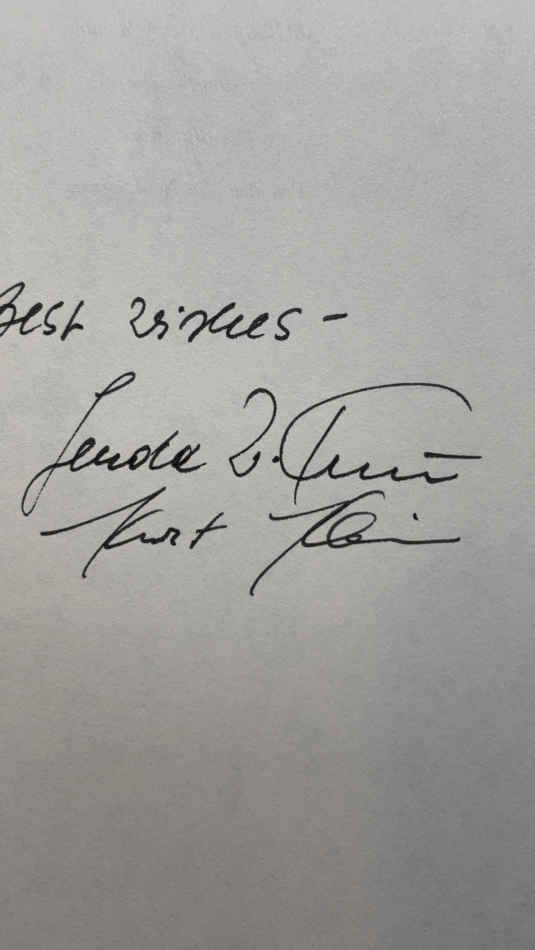 Best wishes -
Gerda W. Klein
Kurt Klein